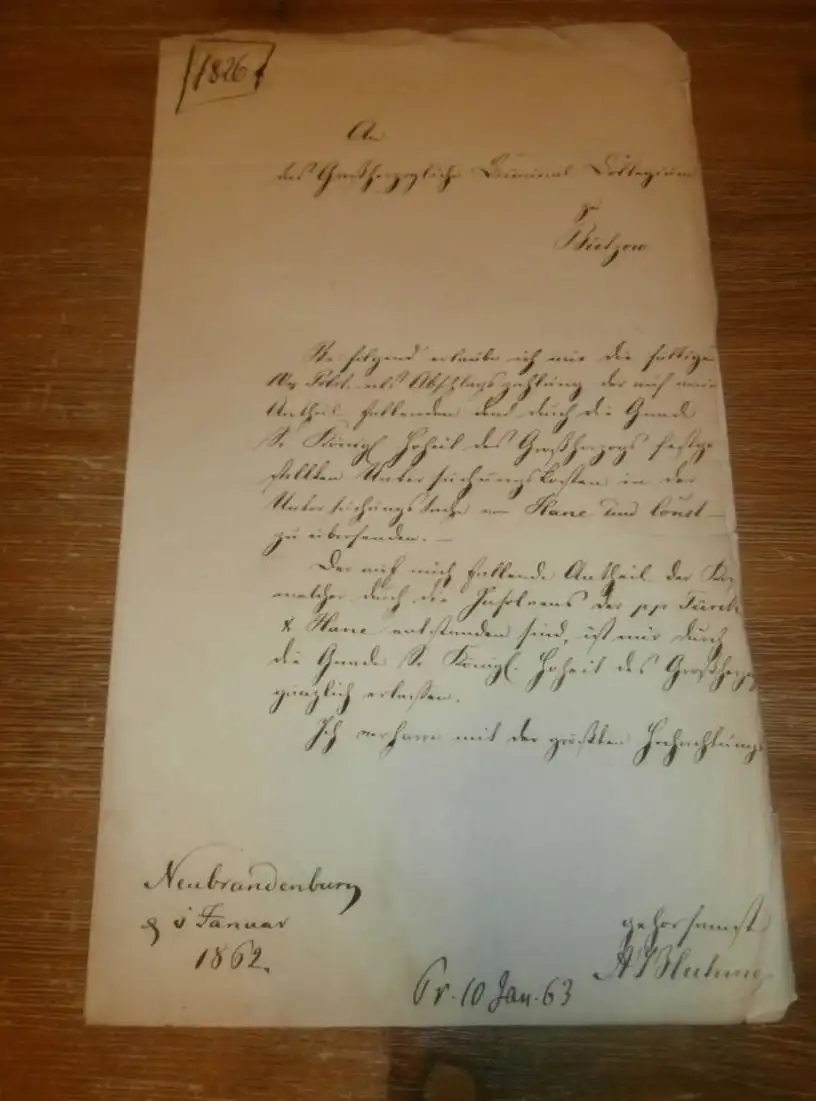 1826
An
das Großherzogliche Criminal Collegium
zu
Bützow
folgend erlaube ich mir die fällige
als Abschlagszahlung der auf mein
Antheil fallenden und durch die Gnade
Sr Königl Hoheit des Großherzogs festge
stellten Untersuchungskosten in der
Untersuchungssache von Hane und Cons
zu übersenden. —
Der auf mich fallende Antheil der
welcher durch die Insolvenz der pp Türck
& Hane entstanden sind, ist mir durch
die Gnade Sr Königl. Hoheit des Großherzog
gänzlich erlassen.
Ich verharre mit der größten Hochachtung
Neubrandenburg
Januar
1862.
gehorsamst
Pr. 10 Jan. 63